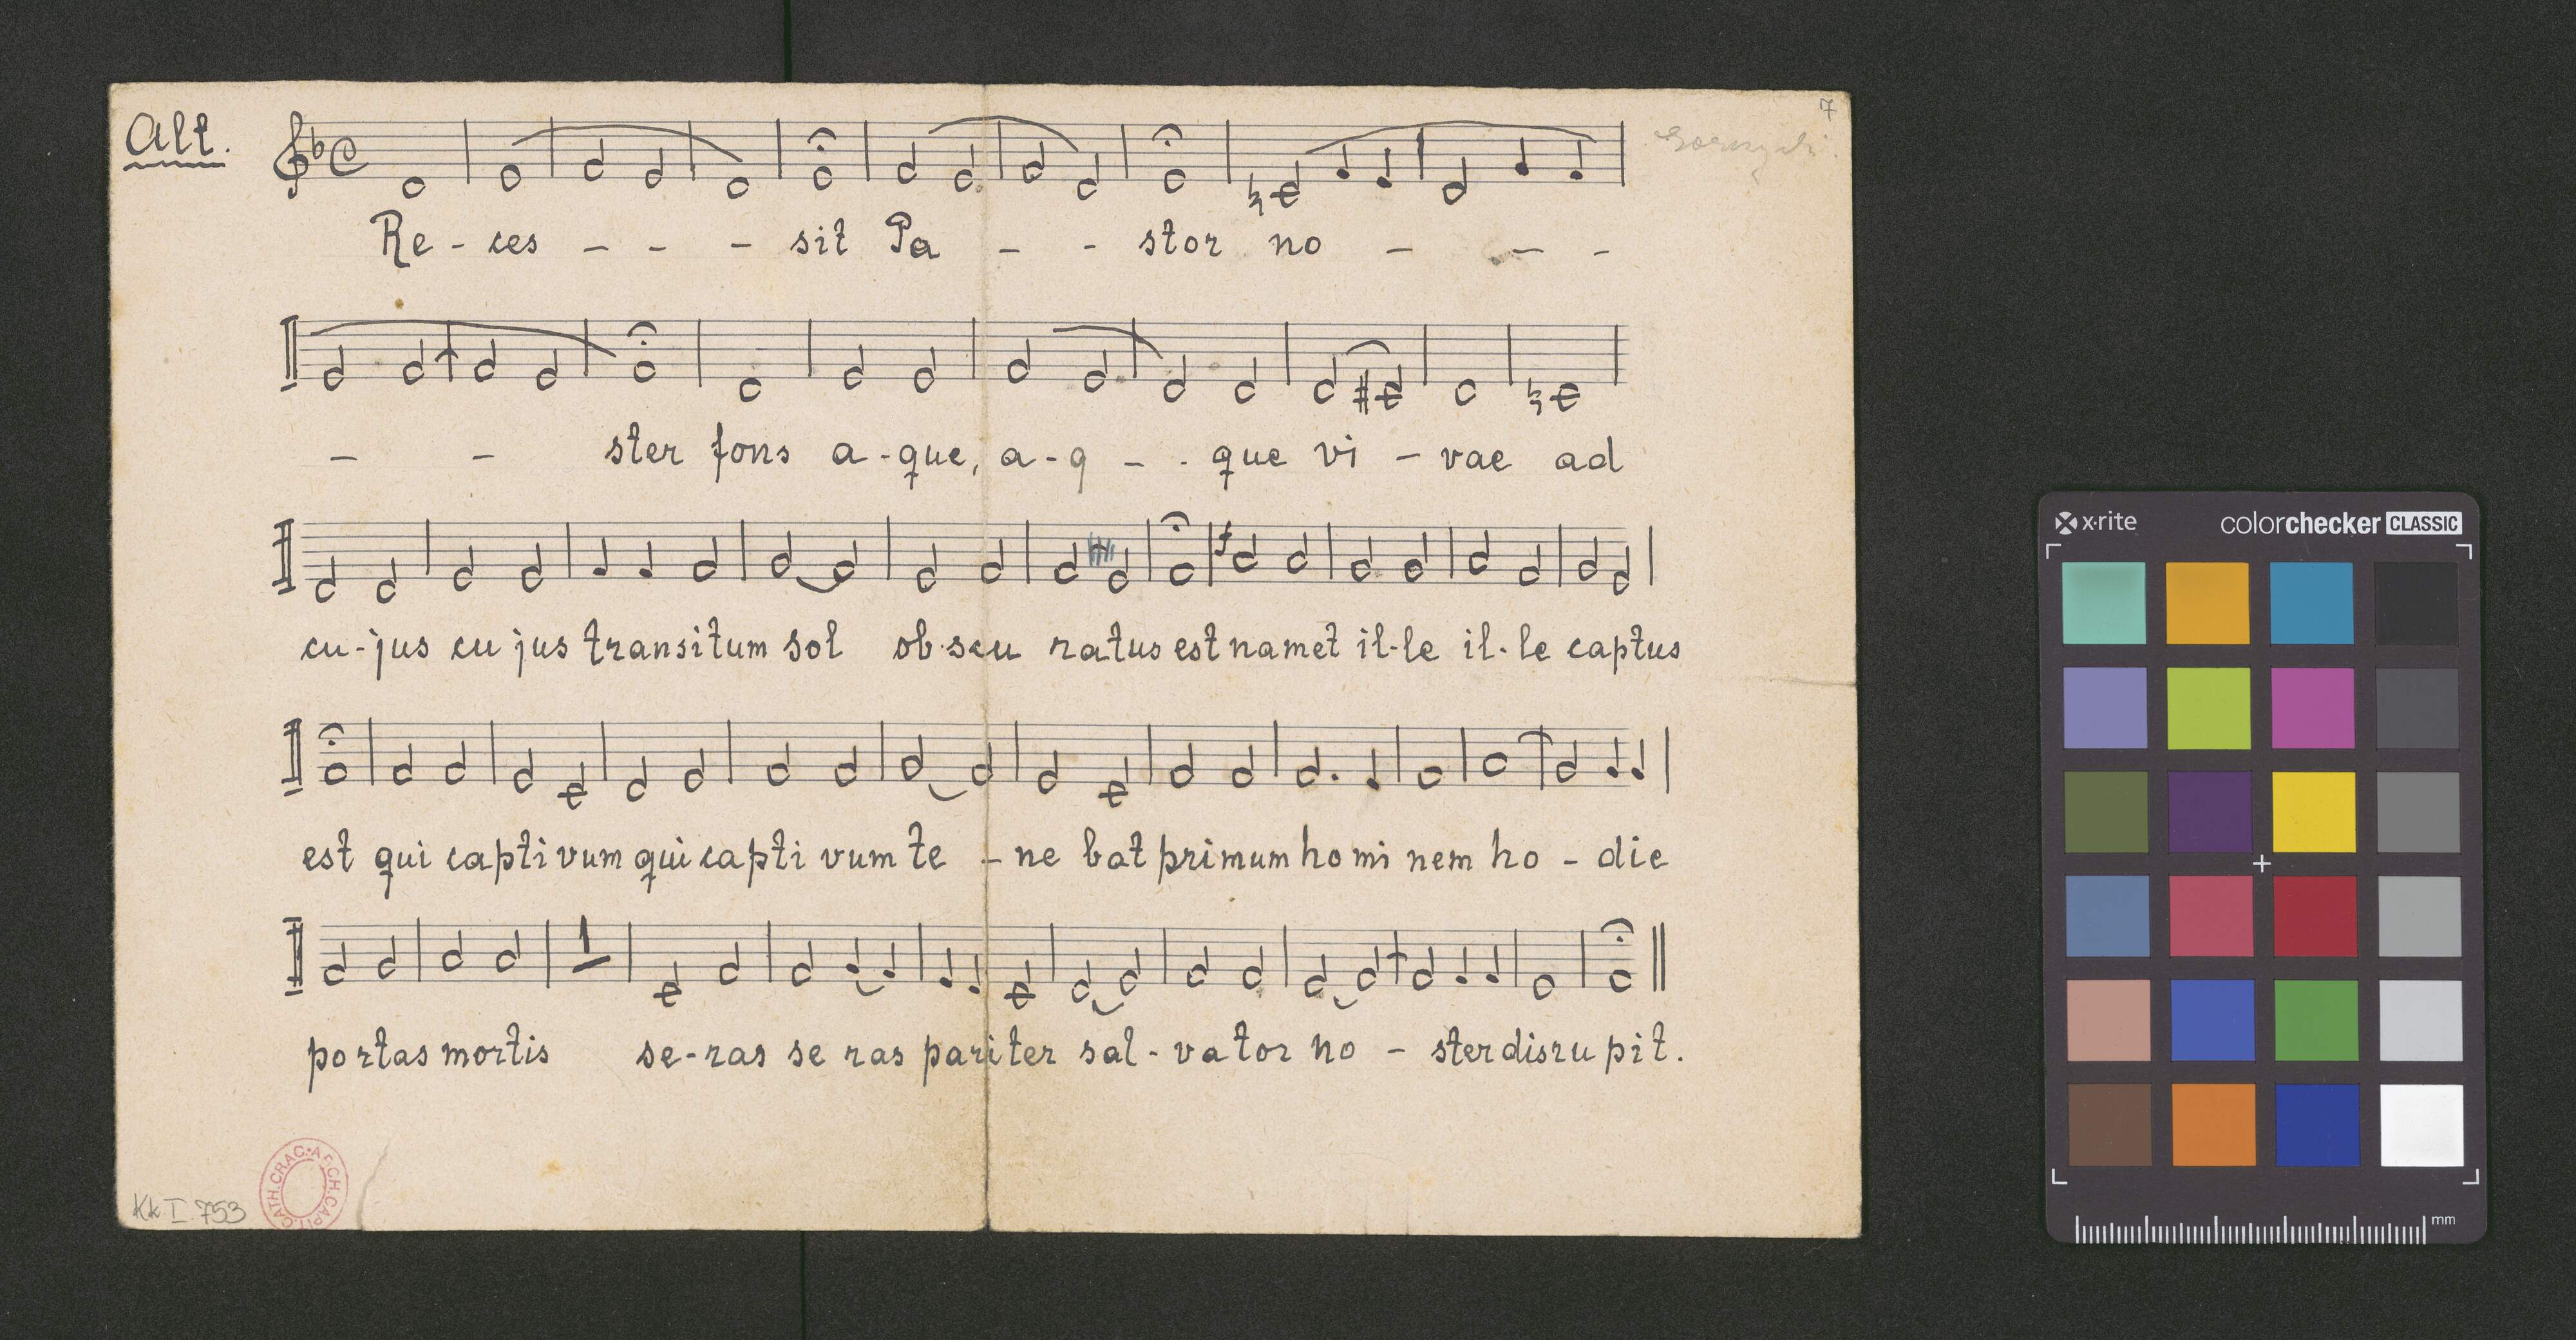 Alt.
7
Re - ces - - - sit Pa - - stor no - - -
- - ster fons a - que, a - q - - que vi - vae ad
cu - jus cu jus transitum sol ob - scu ratus est nam et il - le il - le captus
est qui capti vum qui capti vum te - ne bat primum ho mi nem ho - die
portas mortis se - ras se ras pariter sal - va tor no - ster disru pit.
Kk I. 753
ARCH. CAPIT. CATH. CRAC.
x-rite colorchecker CLASSIC
mm